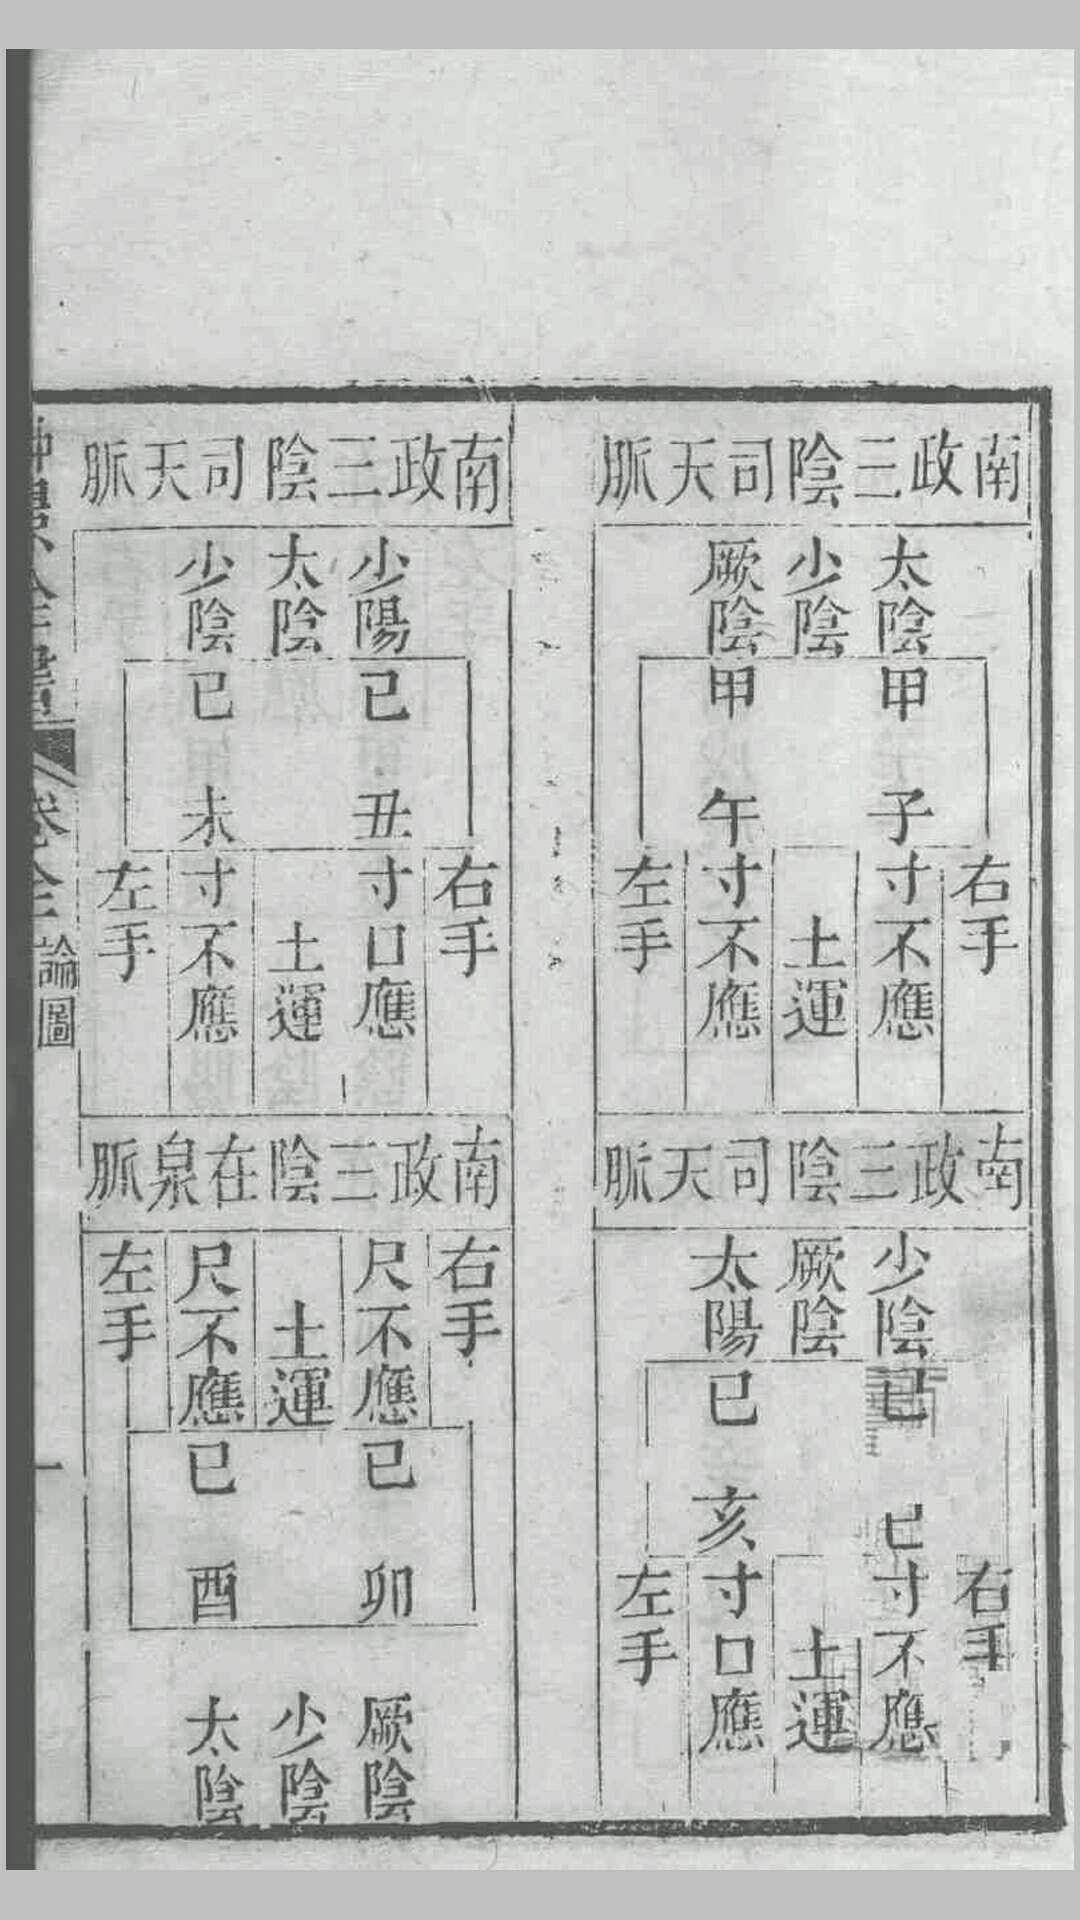 南政三陰司天脈
太陰
少陰
厥陰
甲子
甲午
右手
寸不應
土運
寸不應
左手
南政三陰司天脈
少陰
厥陰
太陽
已巳
已亥
右手
寸不應
土運
寸口應
左手
南政三陰司天脈
少陽
太陰
少陰
已丑
已未
右手
寸口應
土運
寸不應
左手
南政三陰在泉脈
右手
尺不應
土運
尺不應
左手
已卯
已酉
厥陰
少陰
太陰
卷全
論圖
一